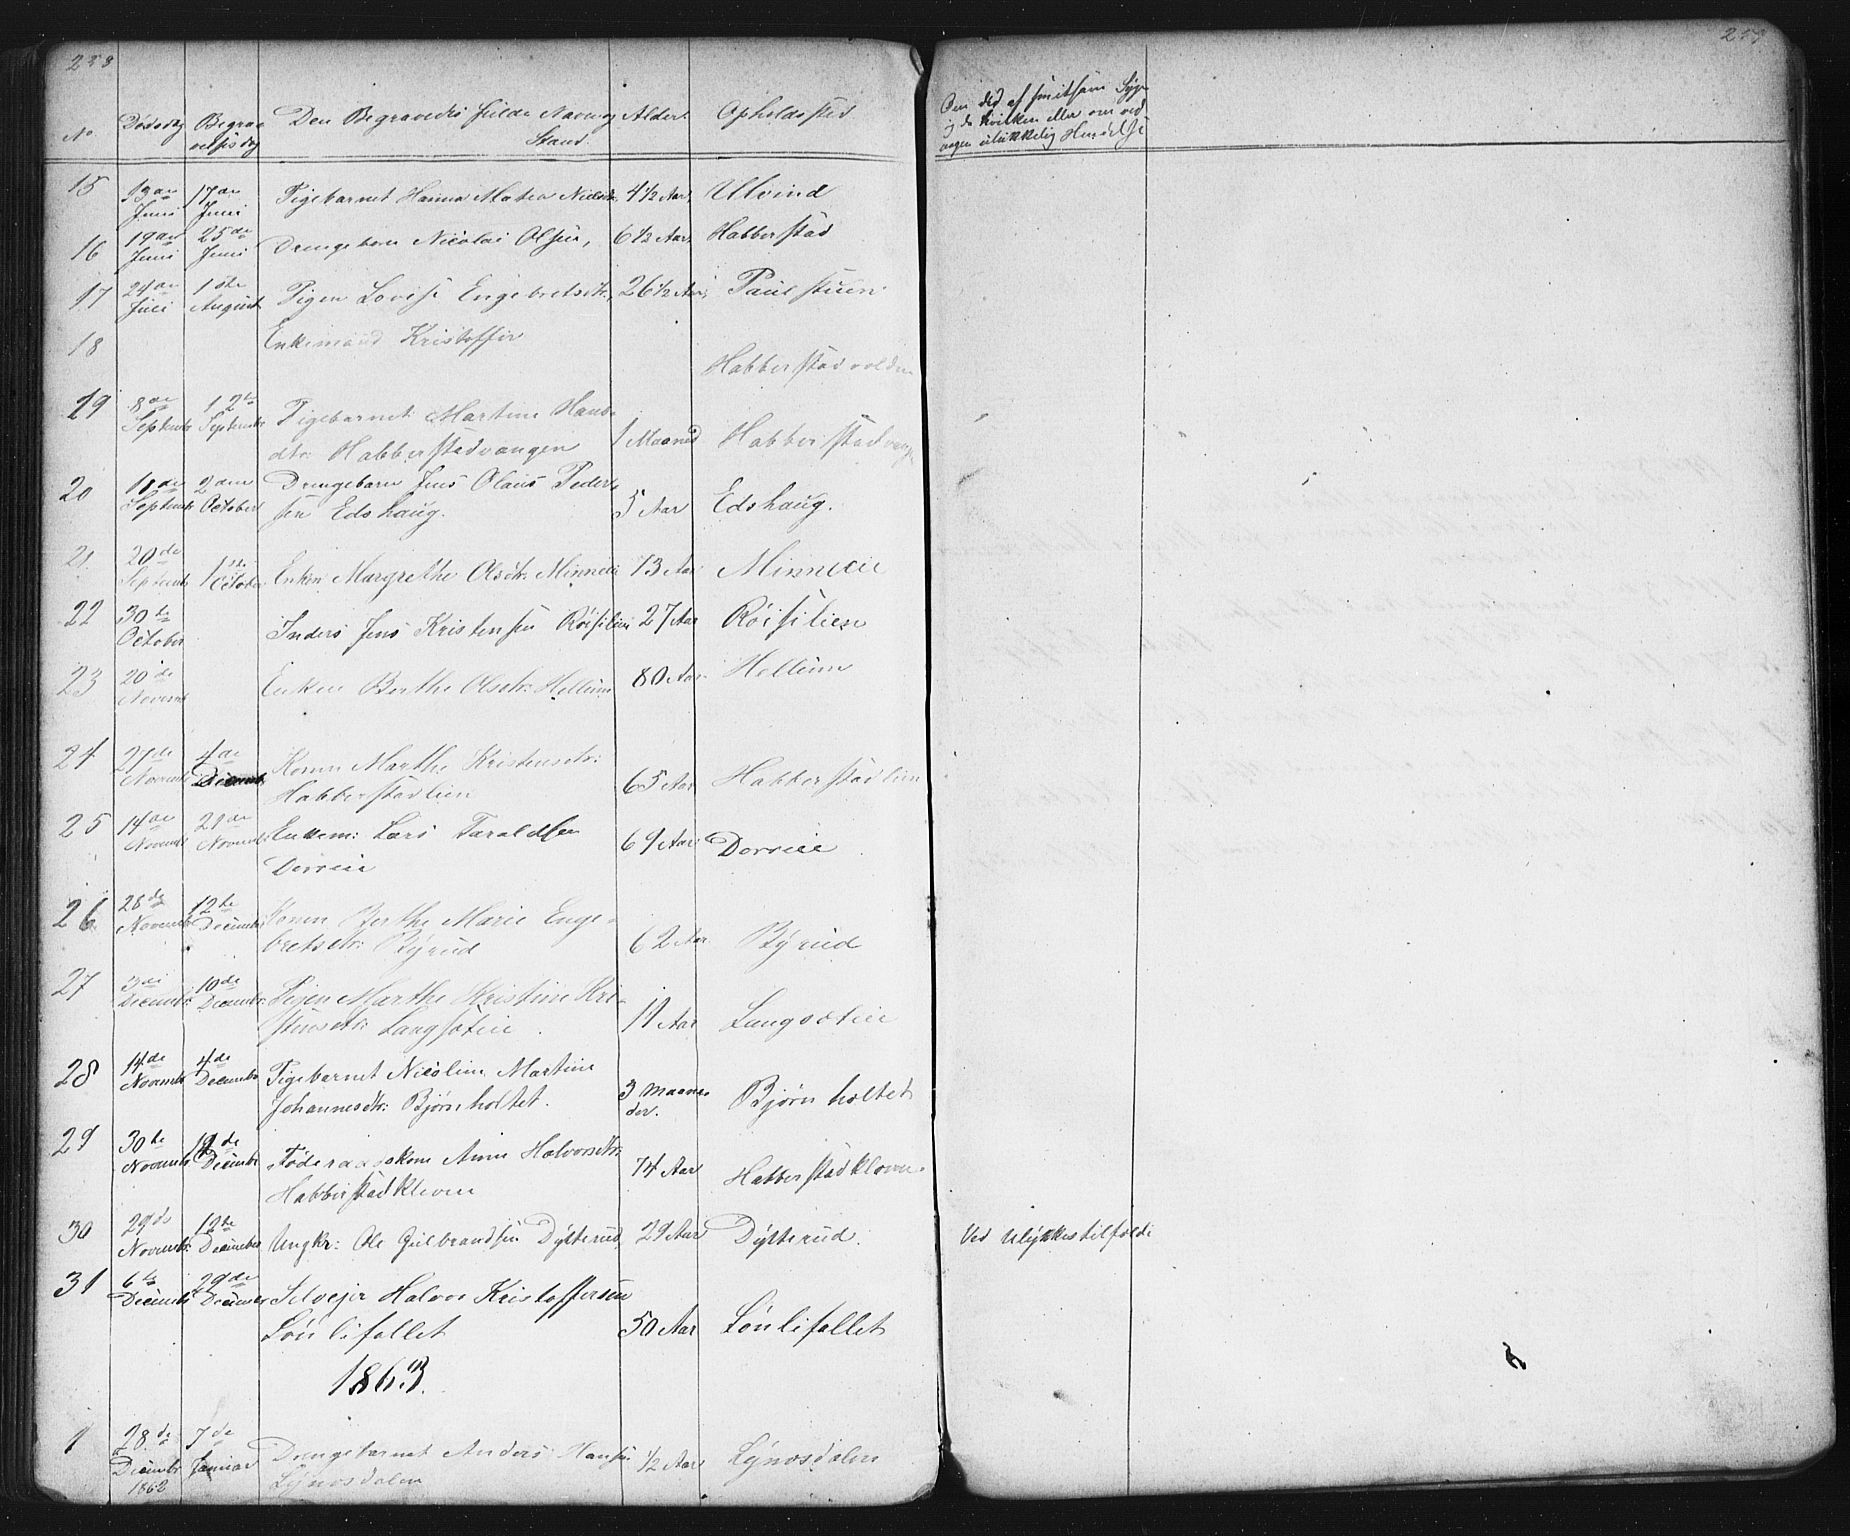 258
No. Dødsdag Begravelsesdag Den Begravedes fulde Navn og Stand. Alder. Opholdssted
15 13de Juni 17de Juni Pigebarnet Hanna Matea Nielsdtr. 4 1/2 Aar Ulvind
16 19de Juni 25de Juni Drengebarn Nicolai Olsen, 6 1/2 Aar Habberstad
17 24de Juli 1ste August Pigen Lovise Engebretsdtr. 26 1/2 Aar, Paulstuen
18 Enkemand Kristoffer
Habberstadvolden
19 8de Septembr 12te Septembr Pigebarnet Martine Hans-
dtr: Habberstadvangen 1 Maaned Habberstadvangen
20 11de Septembr 2den October Drengebarn Jens Olaus Peder-
sen Edshaug. 5 Aar Edshaug.
21. 20de Septembr 1ste October Enken Margrethe Olsdtr: Minneeie 73 Aar Minneeie
22 30te October Inders Jens Kristensen Røisilien 27 Aar Røisilien
23 20de Novemb Enken Berthe Olsdtr: Hellum 80 Aar Hellum
24 27de Novembr 4de Decembr Konen Marthe Kristensdtr:
Habberstadlien 65 Aar Habberstadlien
25 14de Novembr 21de Novembr Enkem: Lars Taraldsen
Dorreie 69 Aar Dorreie
26 28de Novembr 12te Decembr Konen Berthe Marie Enge-
bretsdtr: Byrud 62 Aar Byrud
27 3die Decembr 10de Decembr. Pigen Marthe Kristine Kri-
stensdtr: Langsøteie. 11 Aar Langsøteie
28 14de Novembr 4de Decembr Pigebarnet Nicoline Martine
Johannesdtr: Bjørnholtet. 3 Maaneder. Bjørnholtet
29 30te Novembr 12de Decembr Føderaadskone Anne Halvorsdtr:
Habberstadkleven 74 Aar Habberstadkleven
30 29de Novembr: 12te Decembr Ungkr: Ole Gulbrandsen Dytterud, 29 Aar Dytterud.
31 6te Decembr 29de Decembr Selvejer Halvor Kristoffersen
Lønlifallet 50 Aar Lønlifallet
1863.
1 28de Decembr 1862 7de Januar Drengebarnet Anders Hansen
Lynosdalen 1/2 Aar Lynosdalen
259
Om død af smitsom Syge
og da hvilken eller om ved
nogen ulykkelig Hændelse
Ved Ulykkestilfælde